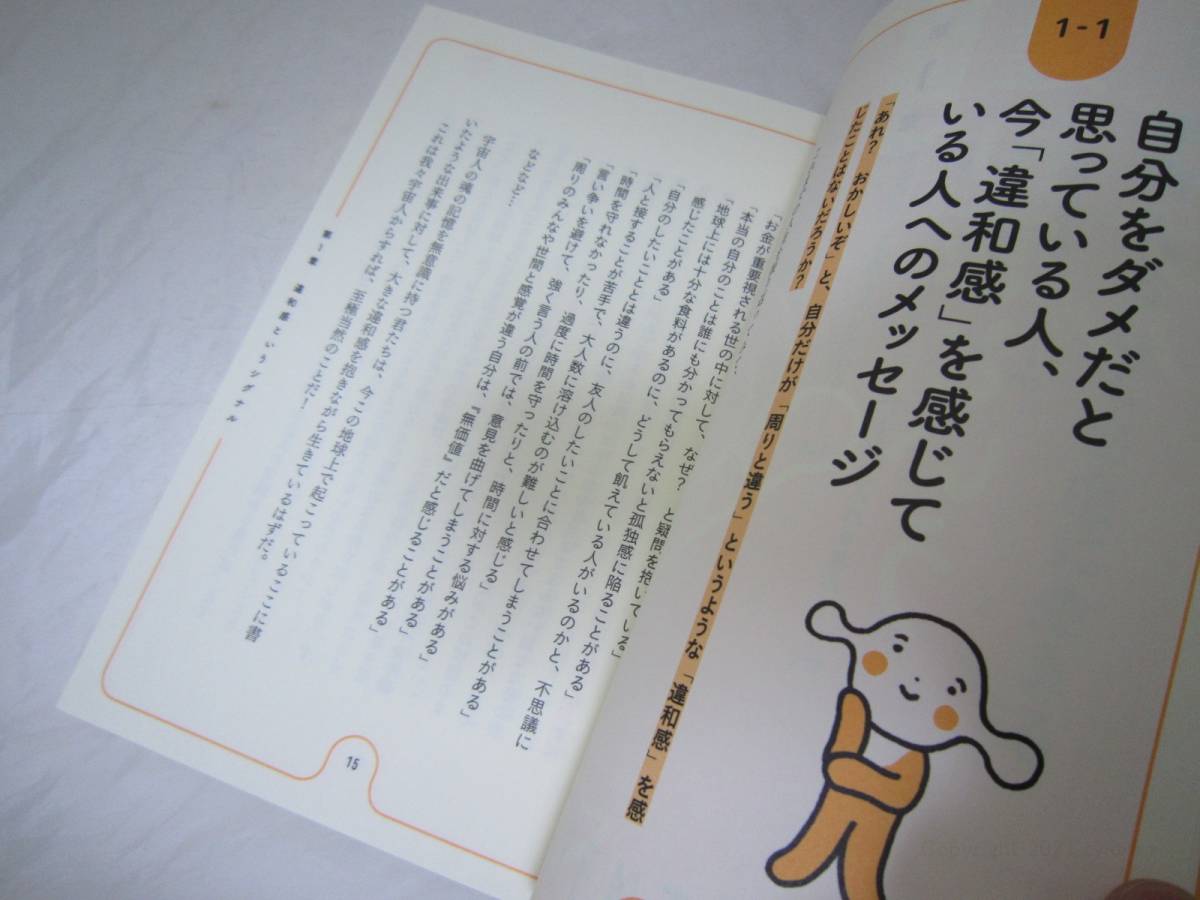 1-1
自分をダメだと
思っている人、
今「違和感」を感じて
いる人へのメッセージ
「あれ？ おかしいぞ」と、自分だけが「周りと違う」というような「違和感」を感
じたことはないだろうか？
「お金が重要視される世の中に対して、なぜ？ と疑問を抱いている」
「本当の自分のことは誰にも分かってもらえないと孤独感に陥ることがある」
「地球上には十分な食料があるのに、どうして飢えている人がいるのかと、不思議に
感じたことがある」
「自分のしたいこととは違うのに、友人のしたいことに合わせてしまうことがある」
「人と接することが苦手で、大人数に溶け込むのが難しいと感じる」
「時間を守れなかったり、過度に時間を守ったりと、時間に対する悩みがある」
「言い争いを避けて、強く言う人の前では、意見を曲げてしまうことがある」
「周りのみんなや世間と感覚が違う自分は、『無価値』だと感じることがある」
などなど…
宇宙人の魂の記憶を無意識に持つ君たちは、今この地球上で起こっているここに書
いたような出来事に対して、大きな違和感を抱きながら生きているはずだ。
これは我々宇宙人からすれば、至極当然のことだ！
第1章 違和感というシグナル
15